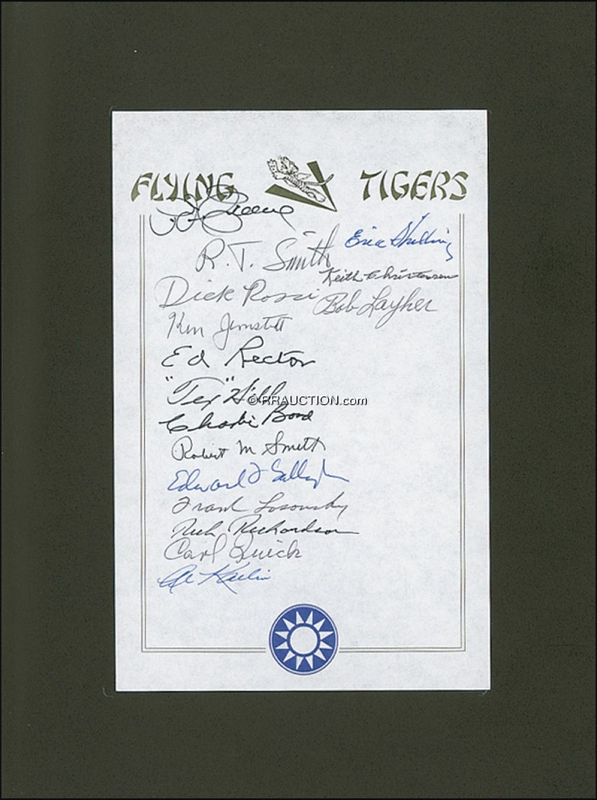 FLYING TIGERS
R.T. Smith
Eric Shilling
Keith Christensen
Dick Rossi
Bob Layher
Ken Jernstedt
Ed Rector
"Tex" Hill
© RRAUCTION.com
Charlie Bond
Robert M Smith
Edward F Gallagher
Frank Losonsky
Rich Richardson
Carl Quick